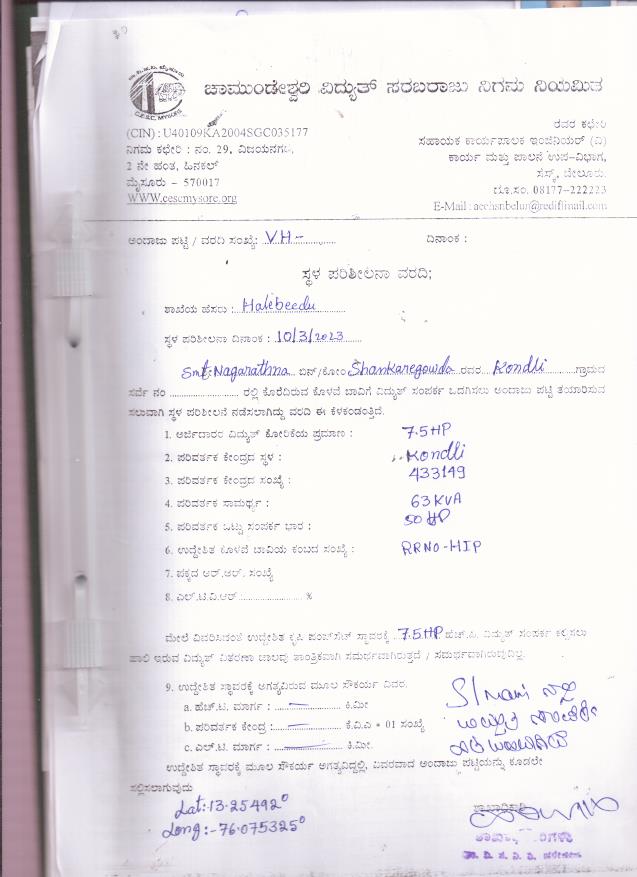 ಚಾಮುಂಡೇಶ್ವರಿ ವಿದ್ಯುತ್ ಸರಬರಾಜು ನಿಗಮ ನಿಯಮಿತ
C.E.S.C, MYSORE
(CIN) : U40109KA2004SGC035177
ನಿಗಮ ಕಛೇರಿ : ನಂ. 29, ವಿಜಯನಗರ,
2 ನೇ ಹಂತ, ಹಿನಕಲ್
ಮೈಸೂರು – 570017
WWW.cescmysore.org
ರವರ ಕಛೇರಿ
ಸಹಾಯಕ ಕಾರ್ಯಪಾಲಕ ಇಂಜಿನಿಯರ್ (ವಿ)
ಕಾರ್ಯ ಮತ್ತು ಪಾಲನೆ ಉಪ-ವಿಭಾಗ,
ಸೆಸ್ಕ್, ಬೇಲೂರು.
ದೂ.ಸಂ. 08177-222223
E-Mail : aeehsnbelur@rediffmail.com
ಅಂದಾಜು ಪಟ್ಟಿ / ವರದಿ ಸಂಖ್ಯೆ: VH- ದಿನಾಂಕ :
ಸ್ಥಳ ಪರಿಶೀಲನಾ ವರದಿ;
ಶಾಖೆಯ ಹೆಸರು : Halebeedu
ಸ್ಥಳ ಪರಿಶೀಲನಾ ದಿನಾಂಕ : 10/3/2023
Smt. Nagarathna ಬಿನ್/ಕೋಂ Shankaregowda ರವರ Kondli ಗ್ರಾಮದ
ಸರ್ವೆ ನಂ ........ ರಲ್ಲಿ ಕೊರೆದಿರುವ ಕೊಳವೆ ಬಾವಿಗೆ ವಿದ್ಯುತ್ ಸಂಪರ್ಕ ಒದಗಿಸಲು ಅಂದಾಜು ಪಟ್ಟಿ ತಯಾರಿಸುವ
ಸಲುವಾಗಿ ಸ್ಥಳ ಪರಿಶೀಲನೆ ನಡೆಸಲಾಗಿದ್ದು ವರದಿ ಈ ಕೆಳಕಂಡಂತ್ತಿದೆ.
1. ಅರ್ಜಿದಾರರ ವಿದ್ಯುತ್ ಕೋರಿಕೆಯ ಪ್ರಮಾಣ : 7.5 HP
2. ಪರಿವರ್ತಕ ಕೇಂದ್ರದ ಸ್ಥಳ : Kondli
3. ಪರಿವರ್ತಕ ಕೇಂದ್ರದ ಸಂಖ್ಯೆ : 433149
4. ಪರಿವರ್ತಕ ಸಾಮರ್ಥ್ಯ : 63 KVA
5. ಪರಿವರ್ತಕ ಒಟ್ಟು ಸಂಪರ್ಕ ಭಾರ : 50 HP
6. ಉದ್ದೇಶಿತ ಕೊಳವೆ ಬಾವಿಯ ಕಂಬದ ಸಂಖ್ಯೆ : RRNO-HIP
7. ಪಕ್ಕದ ಆರ್.ಆರ್. ಸಂಖ್ಯೆ
8. ಎಲ್.ಟಿ.ವಿ.ಆರ್ :........ %
ಮೇಲೆ ವಿವರಿಸಿದಂತೆ ಉದ್ದೇಶಿತ ಕೃಷಿ ಪಂಪ್‌ಸೆಟ್ ಸ್ಥಾವರಕ್ಕೆ 7.5 HP ಹೆಚ್.ಪಿ. ವಿದ್ಯುತ್ ಸಂಪರ್ಕ ಕಲ್ಪಿಸಲು
ಹಾಲಿ ಇರುವ ವಿದ್ಯುತ್ ವಿತರಣಾ ಜಾಲವು ತಾಂತ್ರಿಕವಾಗಿ ಸಮರ್ಥವಾಗಿರುತ್ತದೆ / ಸಮರ್ಥವಾಗಿರುವುದಿಲ್ಲ.
9. ಉದ್ದೇಶಿತ ಸ್ಥಾವರಕ್ಕೆ ಅಗತ್ಯವಿರುವ ಮೂಲ ಸೌಕರ್ಯ ವಿವರ.
a. ಹೆಚ್.ಟಿ. ಮಾರ್ಗ : — ಕಿ.ಮೀ
b. ಪರಿವರ್ತಕ ಕೇಂದ್ರ : — ಕೆ.ವಿ.ಎ * 01 ಸಂಖ್ಯೆ
c. ಎಲ್.ಟಿ. ಮಾರ್ಗ : — ಕಿ.ಮೀ.
ಉದ್ದೇಶಿತ ಸ್ಥಾವರಕ್ಕೆ ಮೂಲ ಸೌಕರ್ಯ ಅಗತ್ಯವಿದ್ದಲ್ಲಿ, ವಿವರವಾದ ಅಂದಾಜು ಪಟ್ಟಿಯನ್ನು ಕೂಡಲೇ
ಸಲ್ಲಿಸಲಾಗುವುದು
Lat:-13.25492°
Long:-76.075325°
ಶಾಖಾಧಿಕಾರಿ